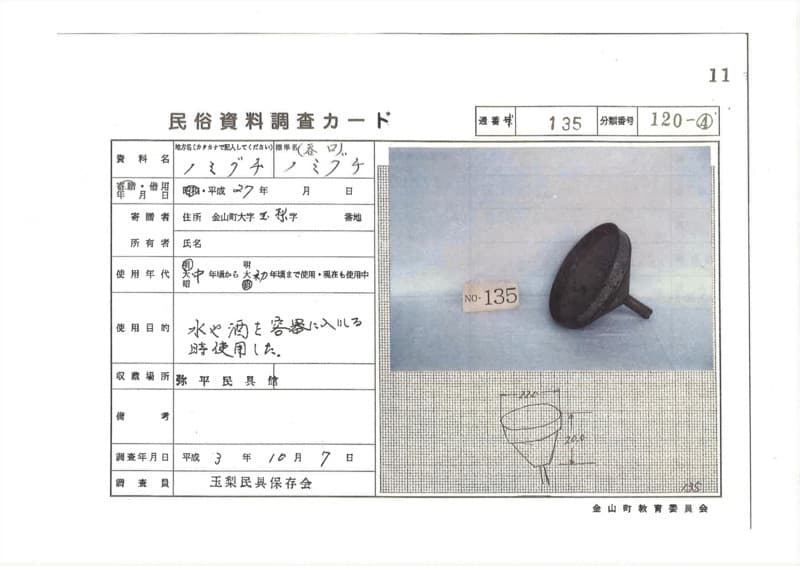 11
民俗資料調査カード
通番号 135 分類番号 120-④
資料名 地方名(カタカナで記入してください) ノミグチ 標準名 (呑口) ノミグチ
寄贈・借用年月日 昭和・平成 27年 月 日
寄贈者 住所 金山町大字玉梨字 番地
所有者 氏名
使用年代 明大昭 中年頃から 明大昭 初年頃まで使用・現在も使用中
使用目的 水や酒を容器に入れる
時使用した。
収蔵場所 弥平民具館
備考
調査年月日 平成 3 年 10 月 7 日
調査員 玉梨民具保存会
NO. 135
22.0
20.0
135
金山町教育委員会